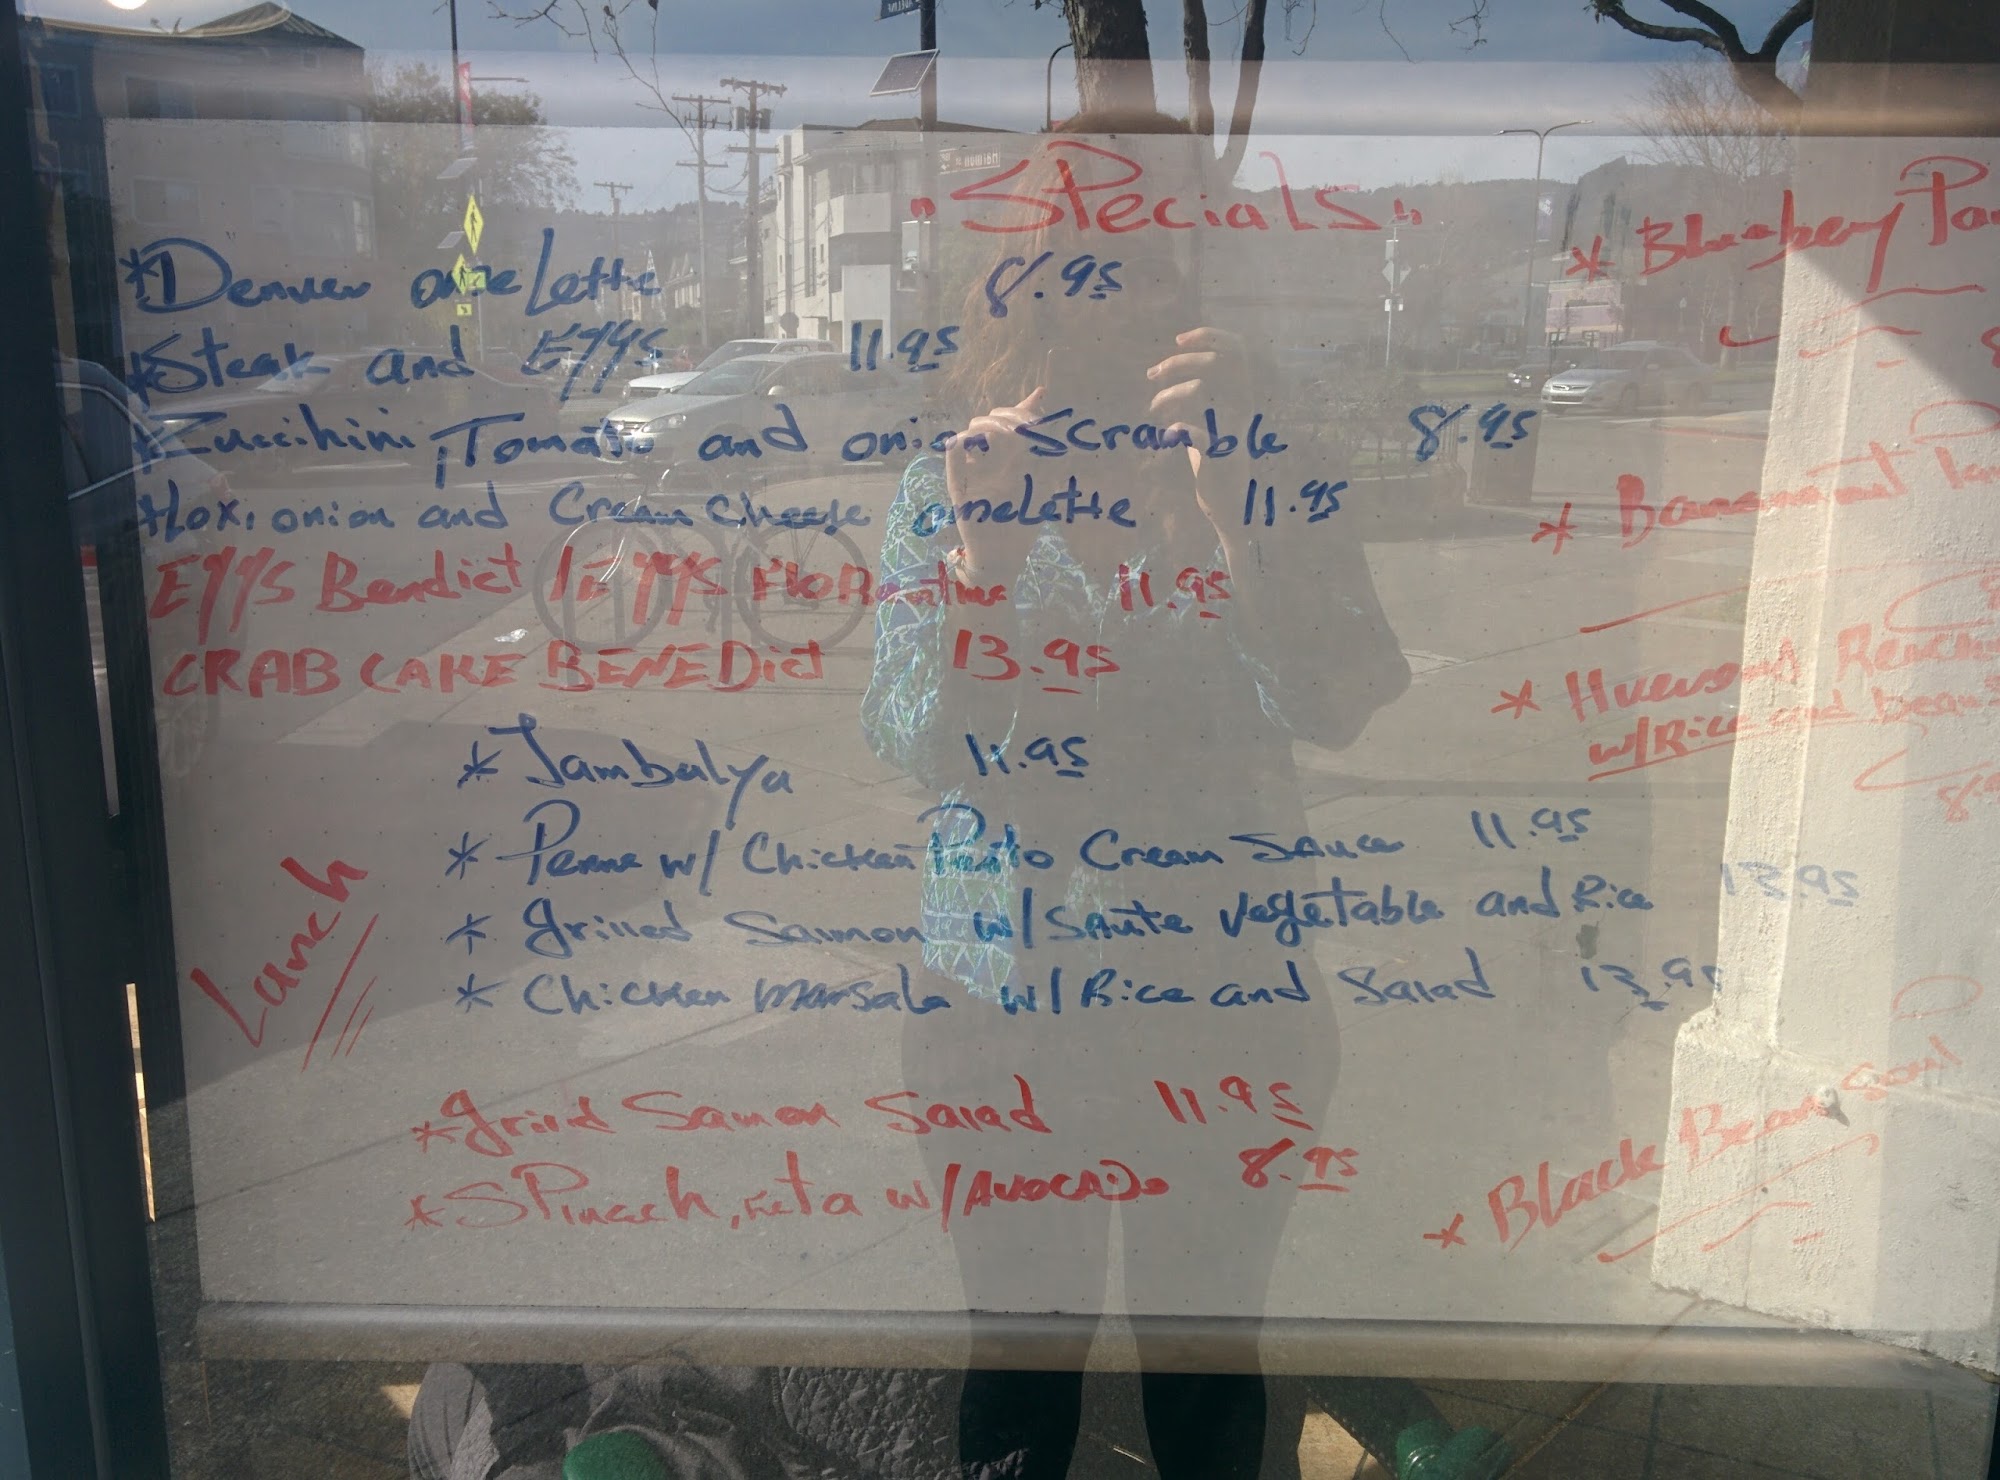 "SPecials"
*Denver omelette 8.95
*Steak and Eggs 11.95
*Zuccihini, Tomato and onion Scramble 8.95
*Lox, onion and Cream Cheese omelette 11.95
Eggs Bendict / Eggs FloRentine 11.95
CRAB CAKE BENEDict 13.95
Lunch
* Jambalya 11.95
* Penne w/ Chicken Pesto Cream Sauce 11.95
* grilled Salmon w/ SAute vegetable and Rice 13.95
* Chicken Marsala w/ Rice and Salad 13.95
*grilld Salmon Salad 11.95
*SPinach, feta w/ AVOCADo 8.95
* Blueberry
* Banana nut
* Huevos
w/Rice and bean
* Black Bean Soup